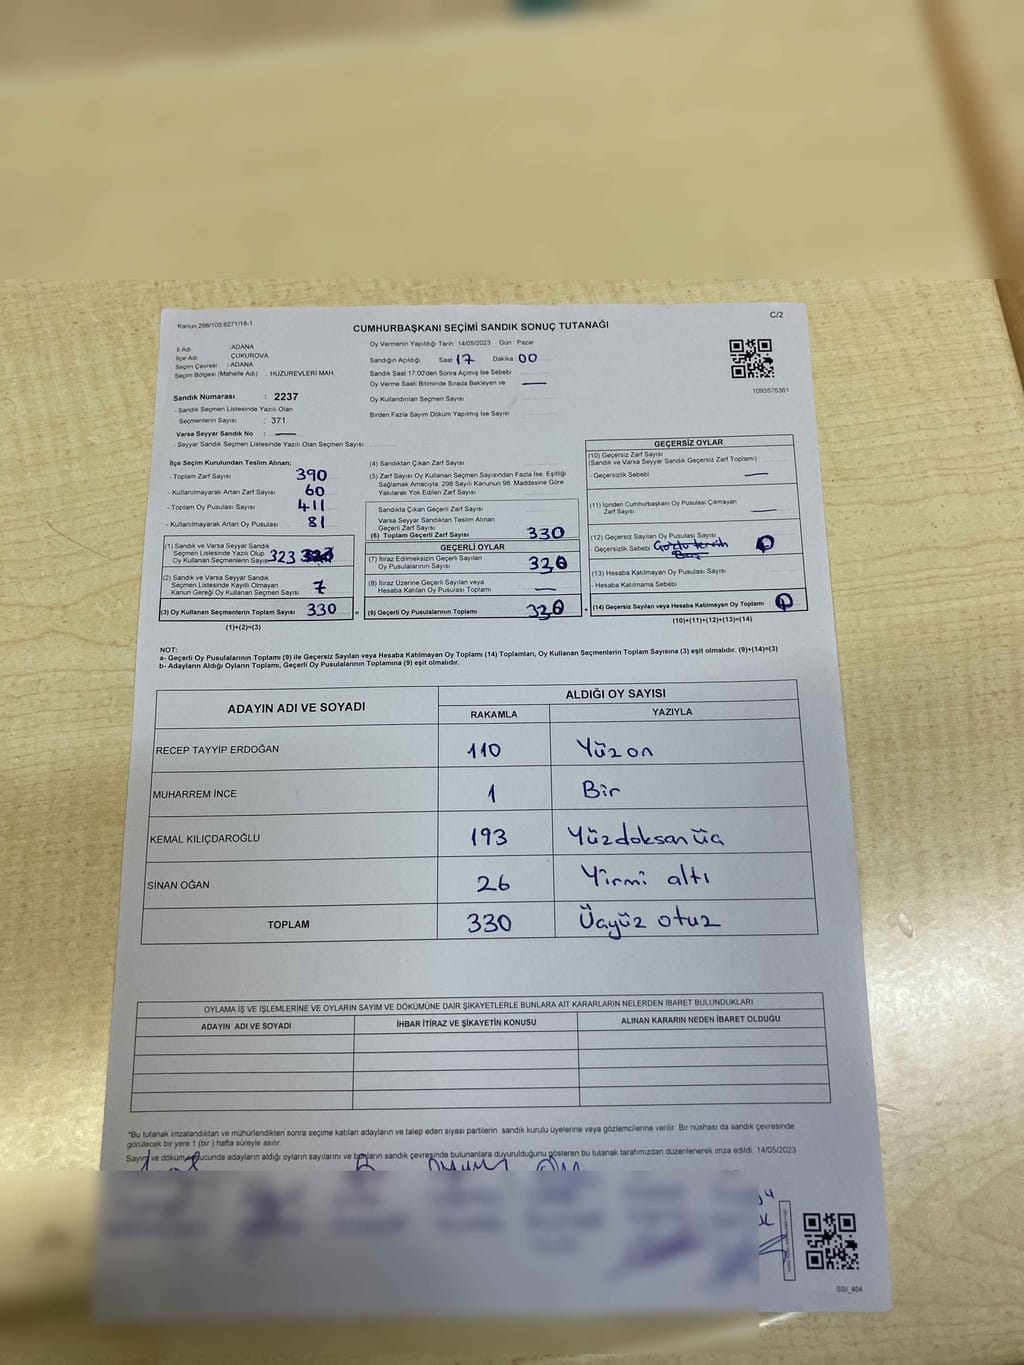 Kanun:298/105.6271/18-1
C/2
CUMHURBAŞKANI SEÇİMİ SANDIK SONUÇ TUTANAĞI
İl Adı : ADANA
İlçe Adı : ÇUKUROVA
Seçim Çevresi : ADANA
Seçim Bölgesi (Mahalle Adı) : HUZUREVLERİ MAH.
Sandık Numarası : 2237
- Sandık Seçmen Listesinde Yazılı Olan
Seçmenlerin Sayısı : 371
Varsa Seyyar Sandık No : —
- Seyyar Sandık Seçmen Listesinde Yazılı Olan Seçmen Sayısı:
Oy Vermenin Yapıldığı Tarih :14/05/2023 Gün : Pazar
Sandığın Açıldığı Saat 17 Dakika : 00
Sandık Saat 17:00'den Sonra Açımış İse Sebebi
Oy Verme Saati Bitiminde Sırada Bekleyen ve —
Oy Kullandırılan Seçmen Sayısı
Birden Fazla Sayım Döküm Yapılmış İse Sayısı
1093576361
İlçe Seçim Kurulundan Teslim Alınan;
- Toplam Zarf Sayısı 390
- Kullanılmayarak Artan Zarf Sayısı 60
- Toplam Oy Pusulası Sayısı 411
- Kullanılmayarak Artan Oy Pusulası 81
(1) Sandık ve Varsa Seyyar Sandık
Seçmen Listesinde Yazılı Olup
Oy Kullanan Seçmenlerin Sayısı 323
(2) Sandık ve Varsa Seyyar Sandık
Seçmen Listesinde Kayıtlı Olmayan
Kanun Gereği Oy Kullanan Seçmen Sayısı 7
(3) Oy Kullanan Seçmenlerin Toplam Sayısı 330
(1)+(2)=(3)
(4) Sandıktan Çıkan Zarf Sayısı
(5) Zarf Sayısı Oy Kullanan Seçmen Sayısından Fazla İse, Eşitliği
Sağlamak Amacıyla, 298 Sayılı Kanunun 98. Maddesine Göre
Yakılarak Yok Edilen Zarf Sayısı
Sandıkta Çıkan Geçerli Zarf Sayısı
Varsa Seyyar Sandıktan Teslim Alınan
Geçerli Zarf Sayısı
(6) Toplam Geçerli Zarf Sayısı 330
GEÇERLİ OYLAR
(7) İtiraz Edilmeksizin Geçerli Sayılan
Oy Pusulalarının Sayısı 330
(8) İtiraz Üzerine Geçerli Sayılan veya
Hesaba Katılan Oy Pusulası Toplamı —
= (9) Geçerli Oy Pusulalarının Toplamı 330
GEÇERSİZ OYLAR
(10) Geçersiz Zarf Sayısı
(Sandık ve Varsa Seyyar Sandık Geçersiz Zarf Toplamı)
- Geçersizlik Sebebi —
(11) İçinden Cumhurbaşkanı Oy Pusulası Çıkmayan
Zarf Sayısı —
(12) Geçersiz Sayılan Oy Pusulası Sayısı
- Geçersizlik Sebebi
(13) Hesaba Katılmayan Oy Pusulası Sayısı
- Hesaba Katılmama Sebebi
+ (14) Geçersiz Sayılan veya Hesaba Katılmayan Oy Toplamı
(10)+(11)+(12)+(13)=(14)
NOT:
a- Geçerli Oy Pusulalarının Toplamı (9) ile Geçersiz Sayılan veya Hesaba Katılmayan Oy Toplamı (14) Toplamları, Oy Kullanan Seçmenlerin Toplam Sayısına (3) eşit olmalıdır. (9)+(14)=(3)
b- Adayların Aldığı Oyların Toplamı, Geçerli Oy Pusulalarının Toplamına (9) eşit olmalıdır.
ADAYIN ADI VE SOYADI
ALDIĞI OY SAYISI
RAKAMLA YAZIYLA
RECEP TAYYİP ERDOĞAN 110 Yüzon
MUHARREM İNCE 1 Bir
KEMAL KILIÇDAROĞLU 193 Yüzdoksanüç
SİNAN OĞAN 26 Yirmi altı
TOPLAM 330 Üçyüz otuz
OYLAMA İŞ VE İŞLEMLERİNE VE OYLARIN SAYIM VE DÖKÜMÜNE DAİR ŞİKAYETLERLE BUNLARA AİT KARARLARIN NELERDEN İBARET BULUNDUKLARI
ADAYIN ADI VE SOYADI İHBAR İTİRAZ VE ŞİKAYETİN KONUSU ALINAN KARARIN NEDEN İBARET OLDUĞU
*Bu tutanak imzalandıktan ve mühürlendikten sonra seçime katılan adayların ve talep eden siyasi partilerin sandık kurulu üyelerine veya gözlemcilerine verilir. Bir nüshası da sandık çevresinde
görülecek bir yere 1 (bir ) hafta süreyle asılır.
Sayım ve döküm sonucunda adayların aldığı oyların sayılarını ve bunların sandık çevresinde bulunanlara duyurulduğunu gösteren bu tutanak tarafımızdan düzenlenerek imza edildi. 14/05/2023
SSI_404